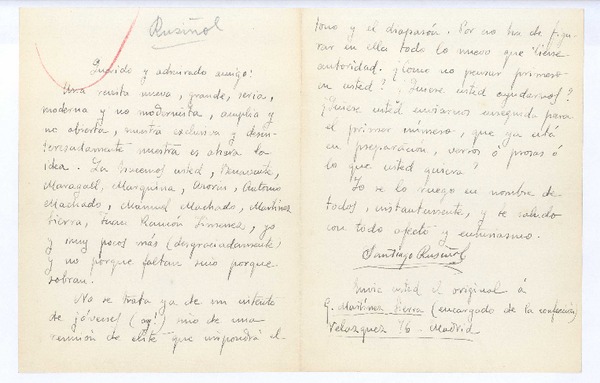 Rusiñol
Querido y admirado amigo:
Una revista nueva, grande, seria,
moderna y no modernista, amplia y
no abierta, nuestra exclusiva y desin-
teresadamente nuestra es ahora la
idea. La hacemos usted, Benavente,
Maragall, Marquina, Azorín, Antonio
Machado, Manuel Machado, Martínez
Sierra, Juan Ramón Jimenez, yo
y muy pocos más (desgraciadamente)
y no porque faltan sino porque
sobran.
No se trata ya de un
de jóvenes (ay!) sino de una
reunión de élite que impondrá el
tono y el diapasón. Por eso ha de figu-
rar en ella todo lo nuevo que tiene
autoridad. ¿Como no pensar primero
en usted? ¿Quiere usted ayudarnos?
¿Quiere usted enviarnos enseguida para
el primer número, que ya está
en preparación, versos ó prosas ó
lo que usted quiera?
Yo se lo ruego en nombre de
todos, instantemente, y le saludo
con todo afecto y entusiasmo.
Santiago Rusiñol
Envie usted el original á
G. Martínez Sierra (encargado de la confección)
Velazquez 76 - Madrid